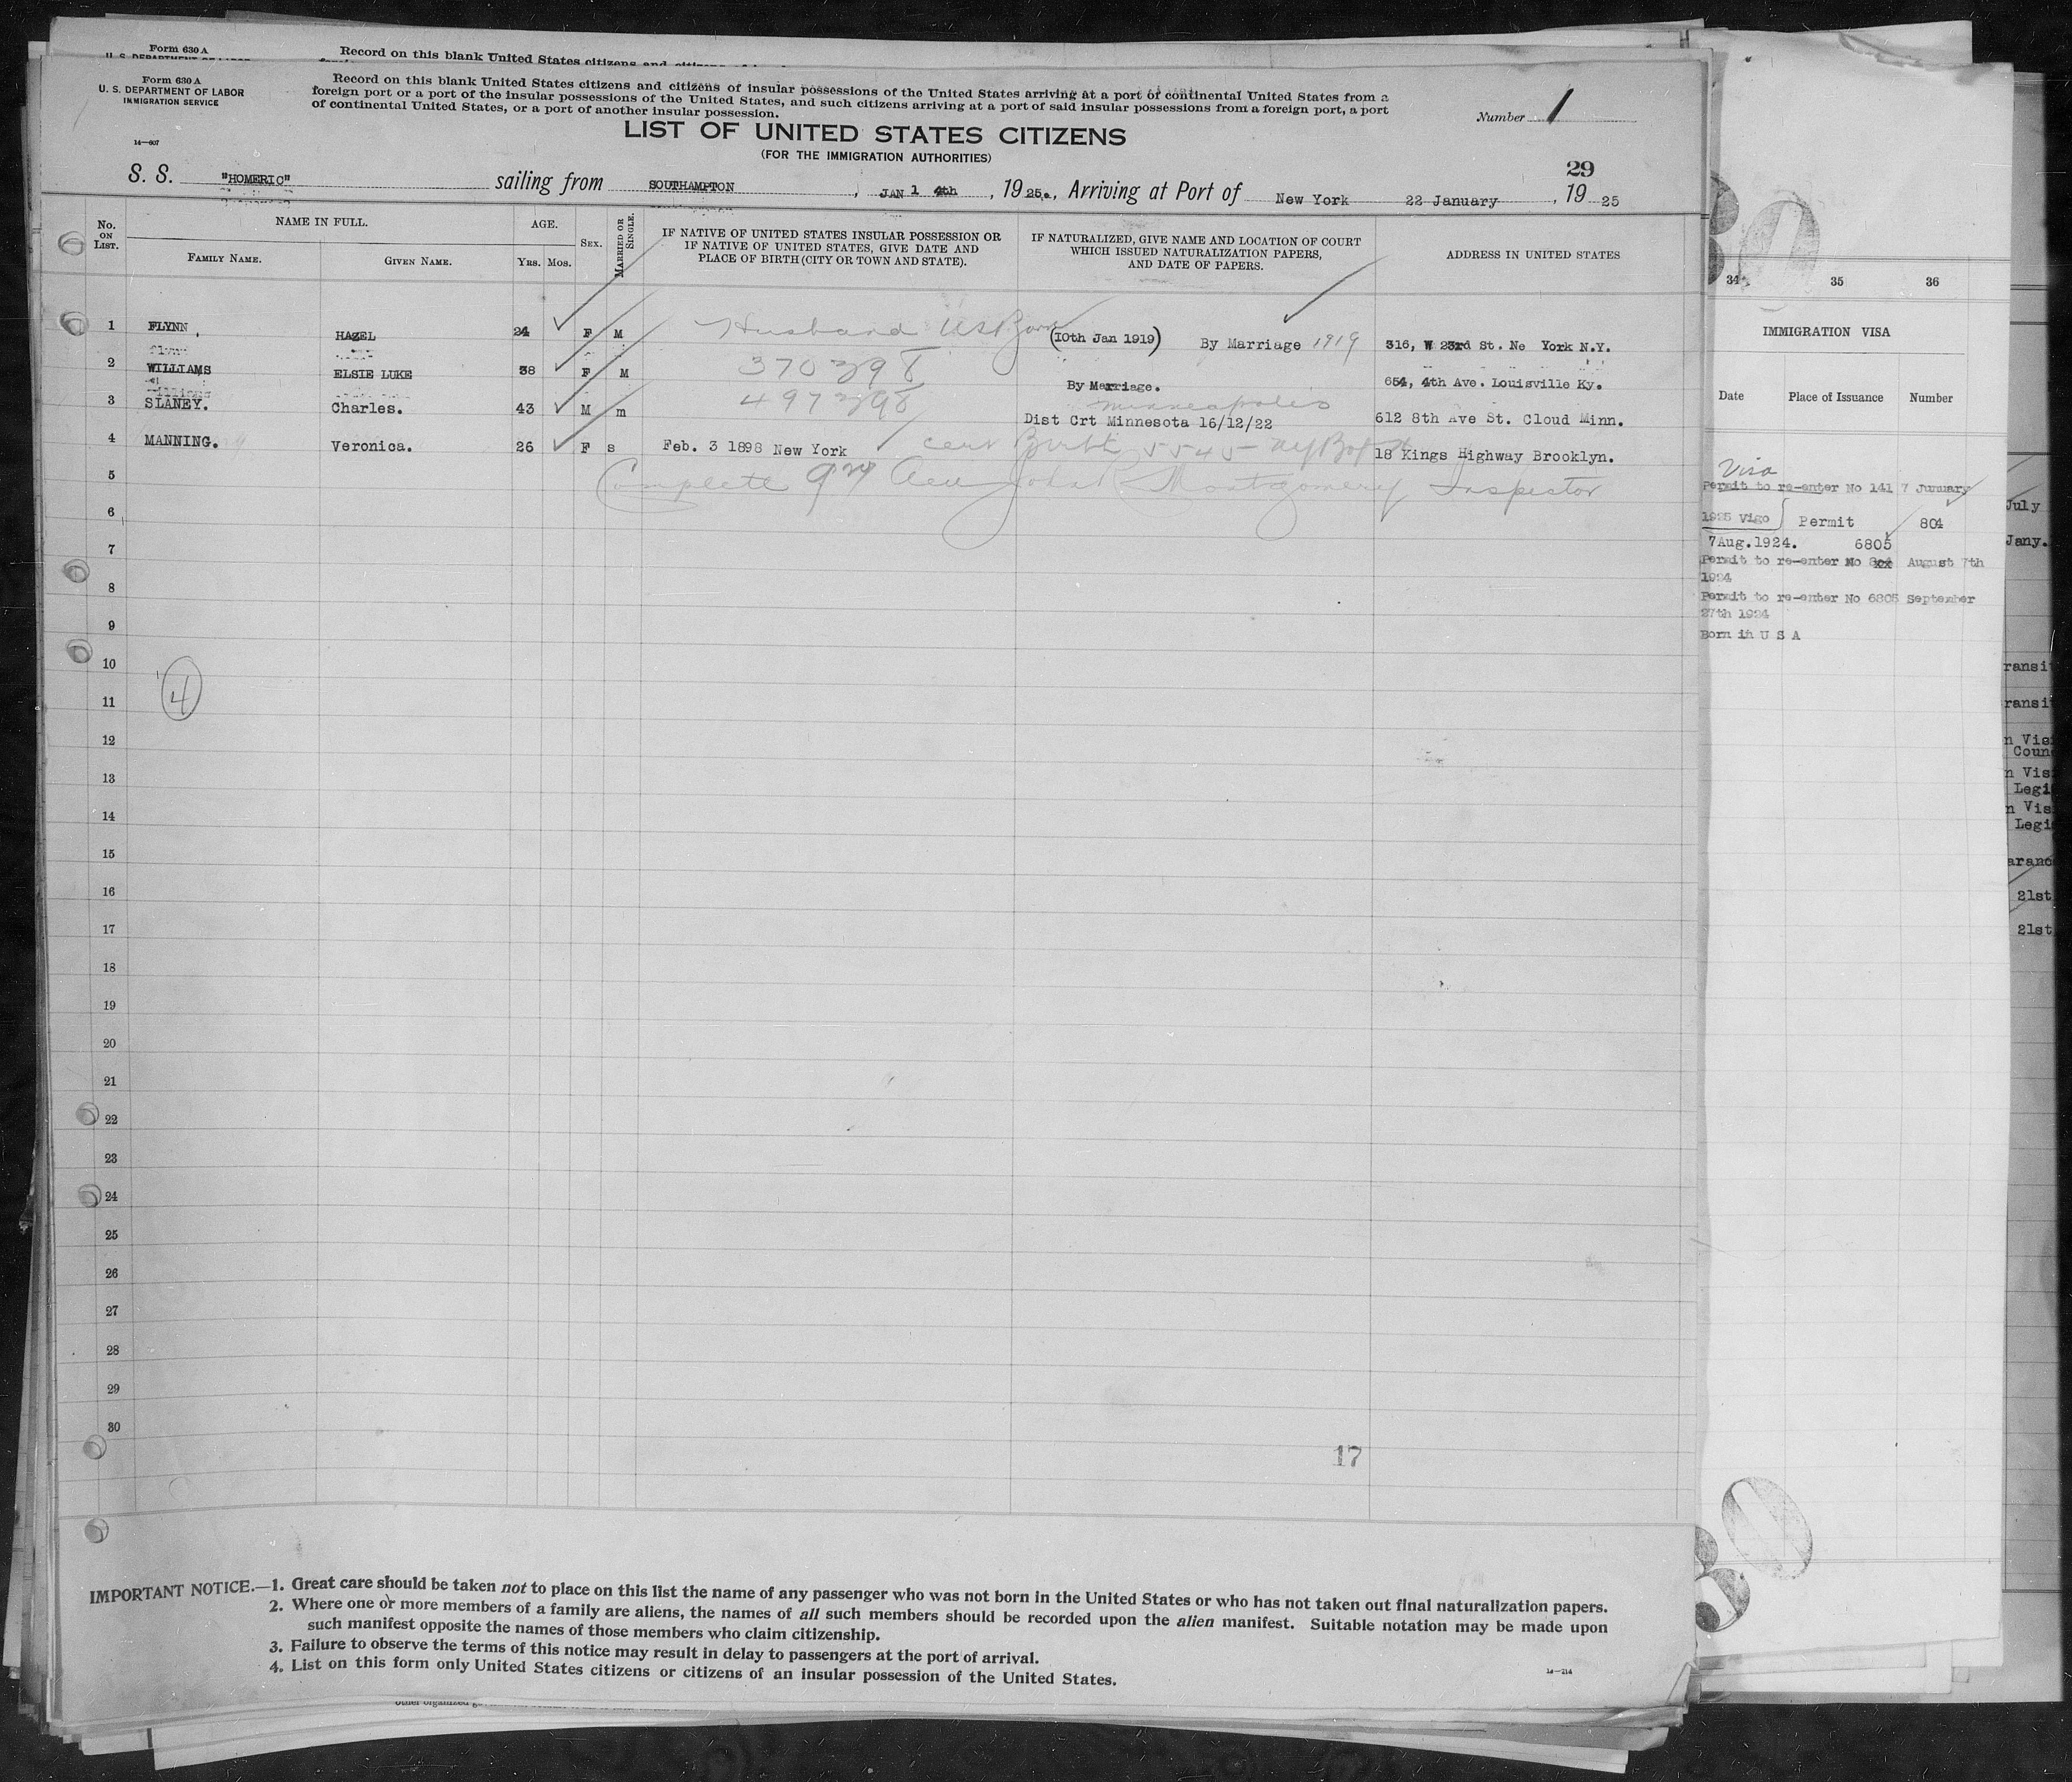 Form 630 A
Record on this blank United States citizens and
Form 630 A
U. S. DEPARTMENT OF LABOR
IMMIGRATION SERVICE
14—607
Record on this blank United States citizens and citizens of insular possessions of the United States arriving at a port of continental United States from a
foreign port or a port of the insular possessions of the United States, and such citizens arriving at a port of said insular possessions from a foreign port, a port
of continental United States, or a port of another insular possession.
Number 1
LIST OF UNITED STATES CITIZENS
(FOR THE IMMIGRATION AUTHORITIES)
29
S. S. "HOMERIC" sailing from SOUTHAMPTON, JAN 14th, 1925., Arriving at Port of New York 22 January, 1925
No. ON LIST.
NAME IN FULL.
FAMILY NAME.
GIVEN NAME.
AGE.
YRS. MOS.
SEX.
MARRIED OR SINGLE.
IF NATIVE OF UNITED STATES INSULAR POSSESSION OR
IF NATIVE OF UNITED STATES, GIVE DATE AND
PLACE OF BIRTH (CITY OR TOWN AND STATE).
IF NATURALIZED, GIVE NAME AND LOCATION OF COURT
WHICH ISSUED NATURALIZATION PAPERS,
AND DATE OF PAPERS.
ADDRESS IN UNITED STATES
1 FLYNN, HAZEL 24 F M Husband US Born (10th Jan 1919) By Marriage 1919 316, W 23rd St. Ne York N.Y.
2 WILLIAMS ELSIE LUKE 38 F M 370398 By Marriage. 654, 4th Ave. Louisville Ky.
3 SLANEY. Charles. 43 M m 497398 Minneapolis
Dist Crt Minnesota 16/12/22 612 8th Ave St. Cloud Minn.
4 MANNING. Veronica. 26 F s Feb. 3 1898 New York Cert Birth 5545 18 Kings Highway Brooklyn.
5 Complete John R Montgomery Inspector
6
7
8
9
10
4
11
12
13
14
15
16
17
18
19
20
21
22
23
24
25
26
27
28
29
30
17
IMPORTANT NOTICE.—1. Great care should be taken not to place on this list the name of any passenger who was not born in the United States or who has not taken out final naturalization papers.
2. Where one or more members of a family are aliens, the names of all such members should be recorded upon the alien manifest. Suitable notation may be made upon
such manifest opposite the names of those members who claim citizenship.
3. Failure to observe the terms of this notice may result in delay to passengers at the port of arrival.
4. List on this form only United States citizens or citizens of an insular possession of the United States.
14—214
34 35 36
IMMIGRATION VISA
Date Place of Issuance Number
Visa
Permit to re-enter No 141 7 January
1925 Vigo Permit 804
7 Aug. 1924. 6805
Permit to re-enter No 804 August 7th
1924
Permit to re-enter No 6805 September
27th 1924
Born in U S A
July
Jany.
ransi
ransi
n Vis
Coun
n Vis
Legi
n Vis
Legi
aranc
21st
21st